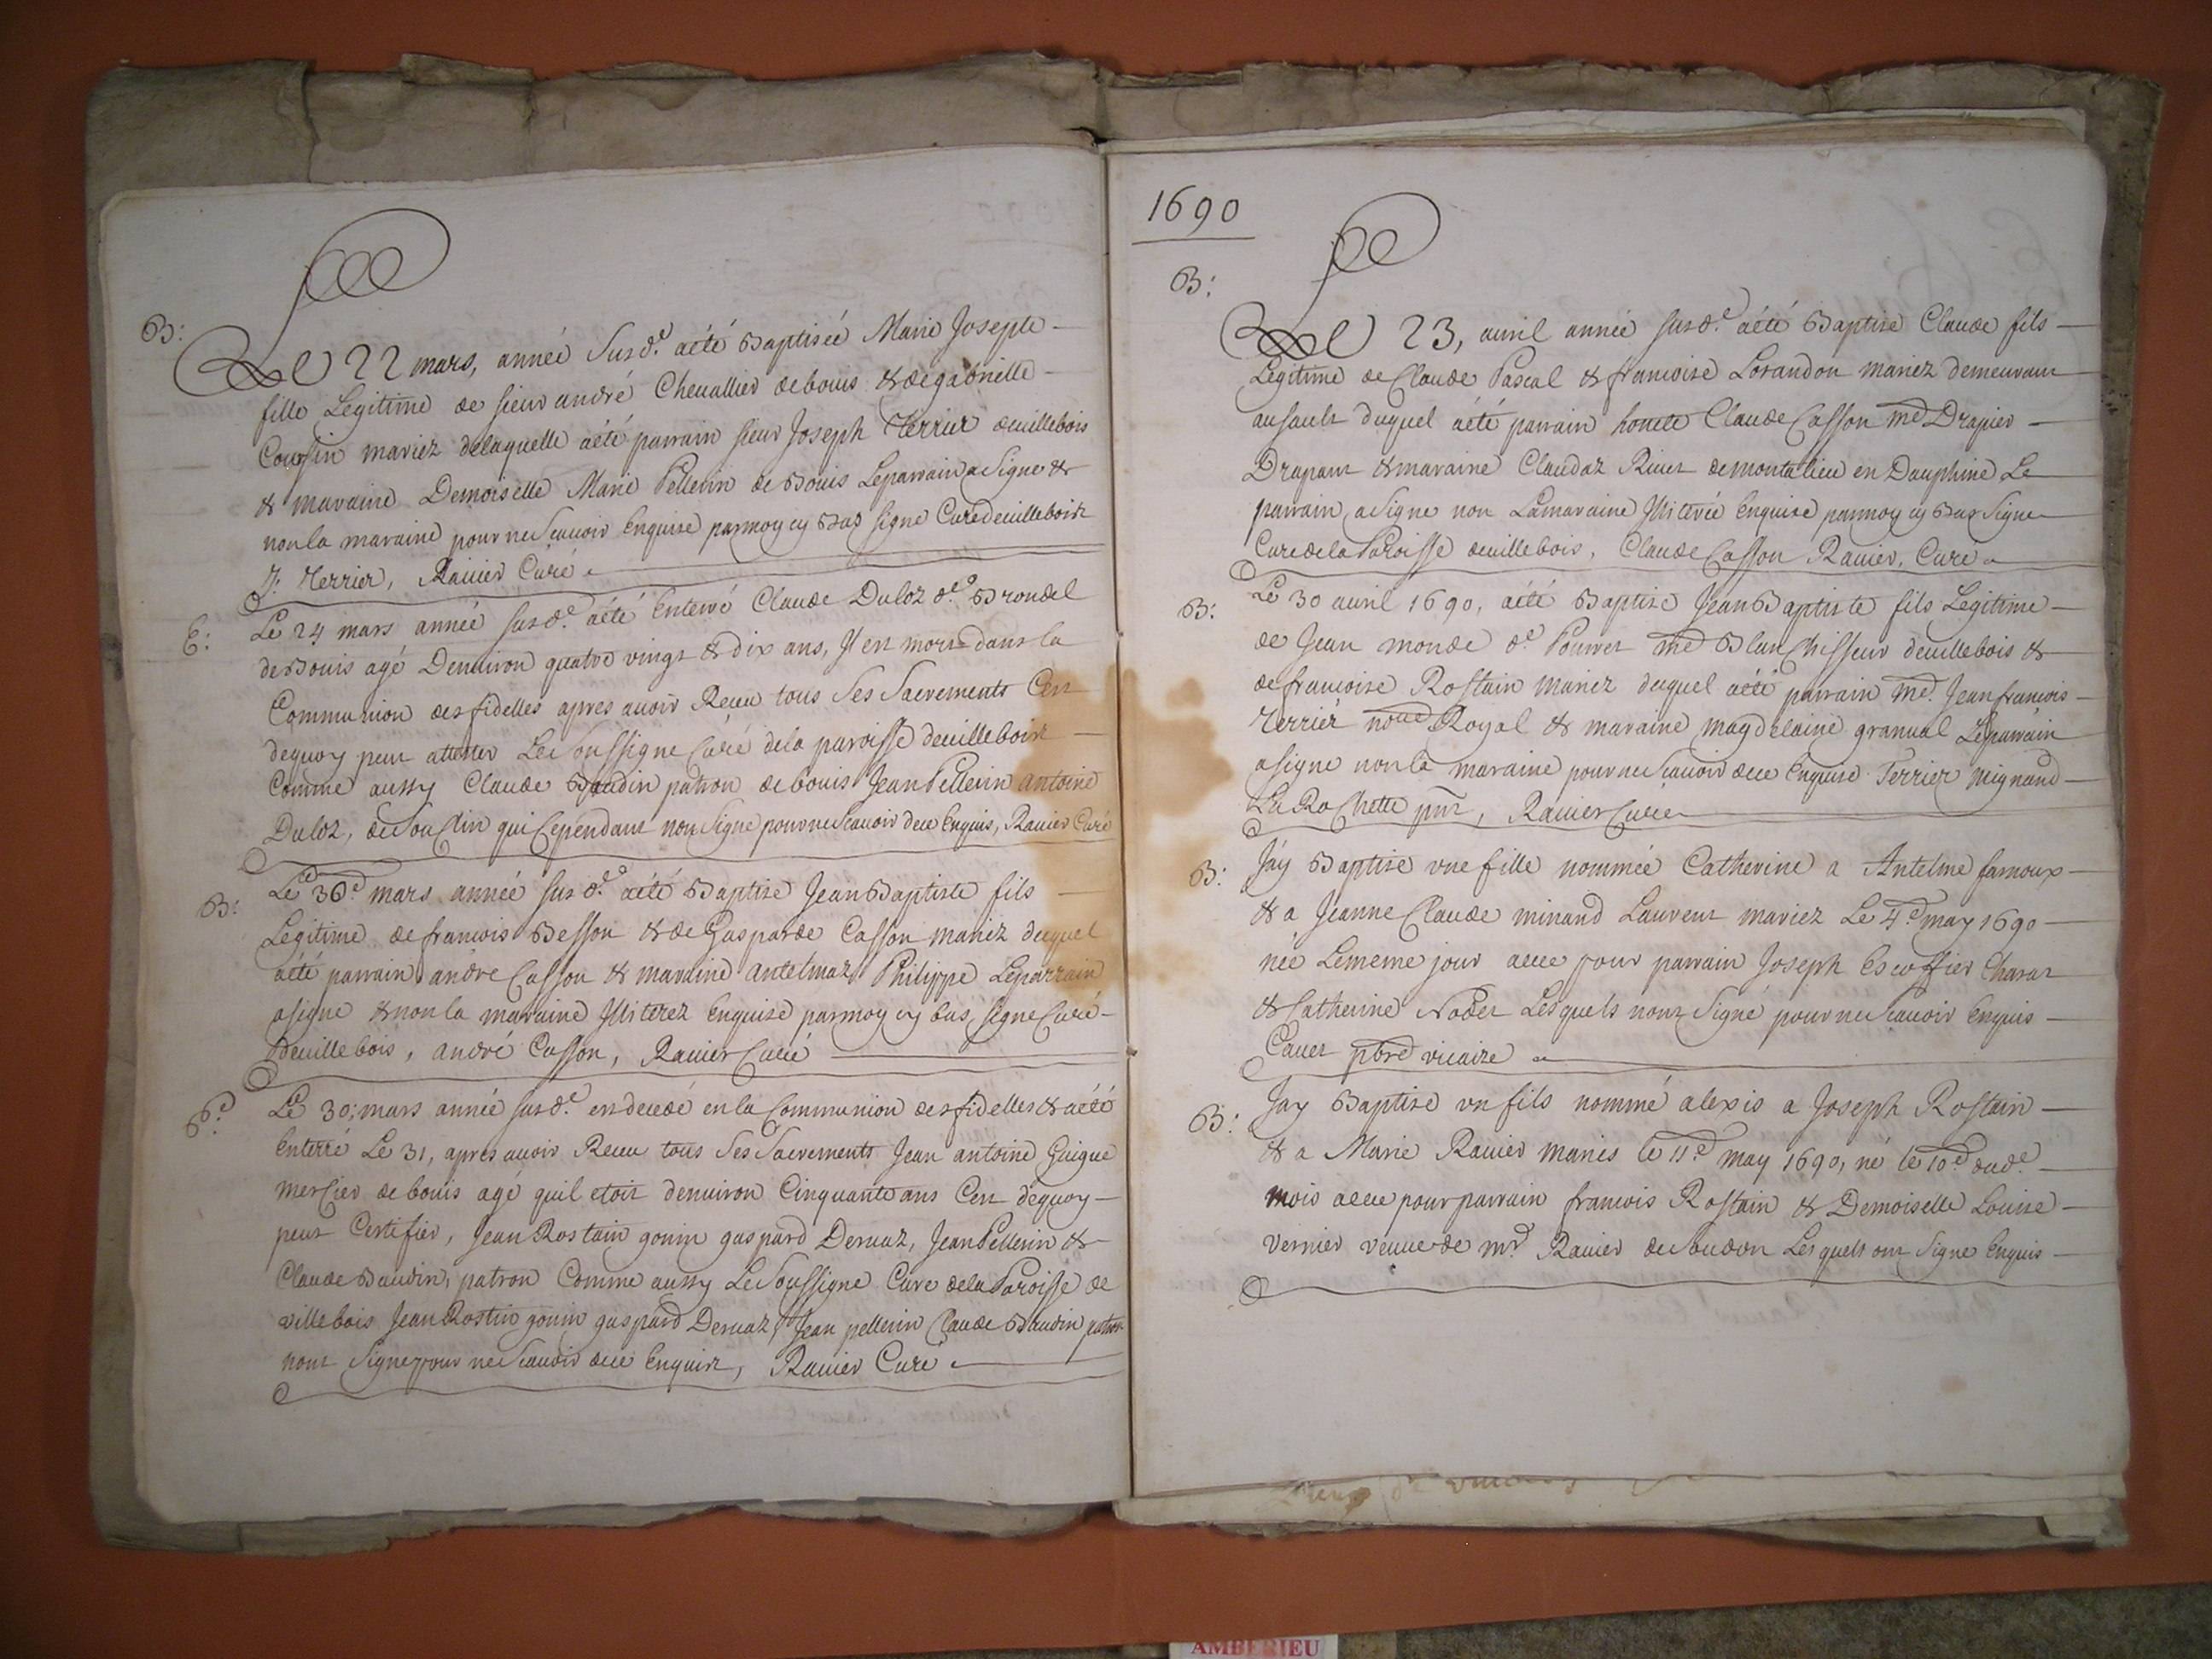 B:
Le 22 mars, année Susd.e aété Baptisée Marie Josepte
fille Legitime de sieur andré Cheuallier debouis & degabrielle
Cousin mariez delaquelle aété parrain sieur Joseph Terrier deuillebois
& maraine Demoiselle Marie Pellerin de Bouis Leparrain a Signe &
nonla maraine pour ne Scauoir Enquise parmoy cy Bas signe Curé deuillebois
J: Terrier, Rauier Curé
E:
Le 24 mars année Susd.e aété Enterré Claude Duloz d.t Brondel
deBouis agé Denuiron quatre vingt & dix ans, Il est mort dans la
Communion des fidelles apres auoir Receu tous Ses Sacrements Cest
dequoy peut attester Le Soussigne Curé dela paroisse deuillebois
Comme aussy Claude Baudin patron debouis Jean Pellerin antoine
Duloz, de Souclin qui Cependant non Signe pour ne Scauoir dece Enquis, Rauier Curé
B:
Le 30e mars année susd.e aété Baptise Jean Baptiste fils
Legitime de francois Besson & de Gasparde Casson mariez duquel
aété parrain andre Casson & maraine antelmaz Philippe Leparrain
asigne & non la maraine Illiterez Enquise parmoy cy bas, Signe Curé
deuillebois, andré Casson, Rauier Curé
Le 30; mars année Susd.e est decedé en la Communion des fidelles & aété
Enterré Le 31, apres auoir Receu tous Ses Sacrements Jean antoine Guigue
mercier de bouis agé quil etoit denuiron Cinquante ans Cest dequoy
peut Certifier, Jean Rostain gonin gaspard Deruaz, Jean Pellerin &
Claude Baudin, patron Comme aussy Le Soussigne Curé dela Paroisse de
villebois Jean Rostin gonin gaspard Deruaz, Jean pellerin Claude Baudin patron
nont Signe pour ne Scauoir dece Enquis, Rauier Curé
1690
B:
Le 23, auril année susd.e aété Baptise Claude fils
Legitime de Claude Pascal & francoise Lorandon mariez demeurant
ausault duquel aété parrain honete Claude Casson md Drapier
Drapant & maraine Claudaz Riuet demontalieu en Dauphiné Le
parrain a Signe non Lamaraine Illiterée Enquise parmoy cy Bas Signe
Curé dela Paroisse deuillebois, Claude Casson Rauier, Curé
B:
Le 30 auril 1690, aété Baptise Jean Baptiste fils Legitime
de Jean monde d.t Pourret md Blanchisseur deuillebois &
defrancoise Rostain mariez duquel aété parrain me. Jean francois
Terrier nore Royal & maraine magdelaine granual Leparrain
asigne non la maraine pour ne Scauoir dece Enquise Terrier mignand
La Rochette pnt, Rauier Curé
B:
Jay Baptise vne fille nommée Catherine a Antelme famoux
& a Jeanne Claude minand Laurent mariez Le 4e may 1690
née Lememe jour aeue pour parrain Joseph Escoffier Charat
& Catherine Nodet Lesquels nont Signé pour ne Scauoir Enquis
Cauet pbre vicaire
B:
Jay Baptise vn fils nommé alexis a Joseph Rostain
& a Marie Rauier mariés le 11e may 1690, né le 10e dud.t
mois aeue pour parrain francois Rostain & Demoiselle Louise
Vernier veuue de mr Rauier de Soudon Les quels ont Signe Enquis
AMBERIEU